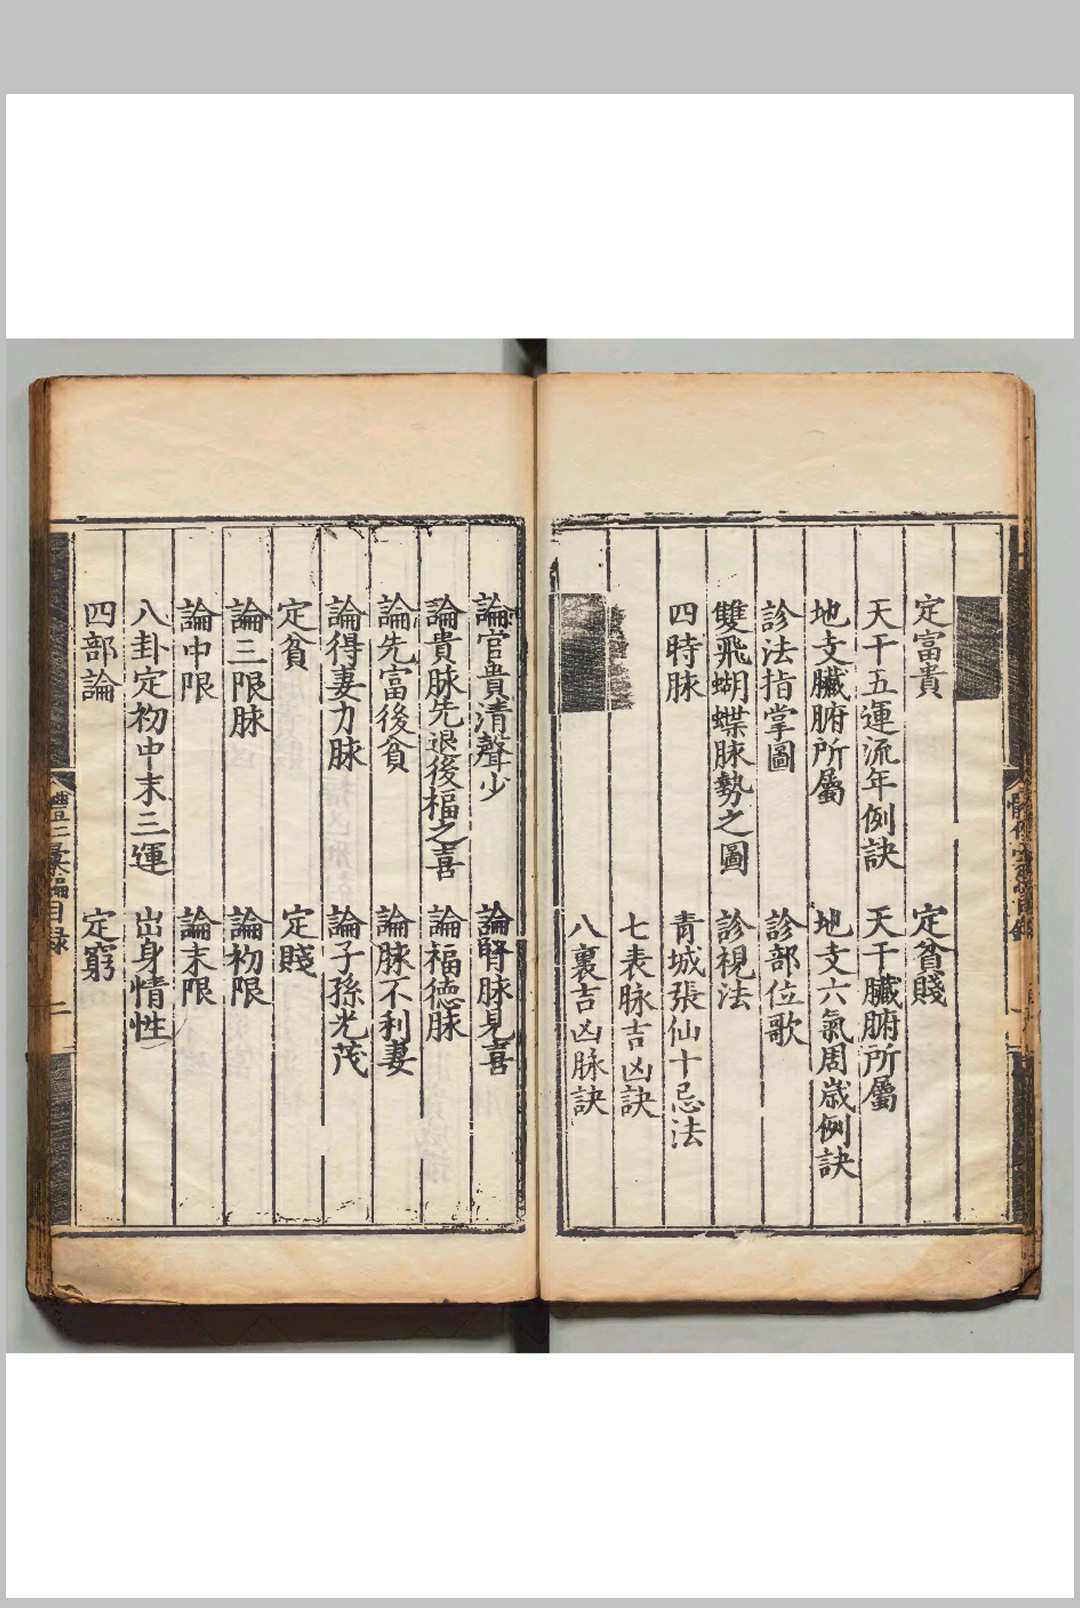 定富貴 定貧賤
天干五運流年例訣 天干臟腑所屬
地支臟腑所屬 地支六氣周歲例訣
診法指掌圖 診部位歌
雙飛蝴蝶脉勢之圖 診視法
四時脉 青城張仙十忌法
七表脉吉凶訣
八裏吉凶脉訣
論官貴清聲少 論腎脉見喜
論貴脉先退後福之喜 論福德脉
論先富後貧 論脉不利妻
論得妻力脉 論子孫光茂
定貧 定賤
論三限脉 論初限
論中限 論末限
八卦定初中末三運 出身情性
四部論 定窮
彙編目録 二